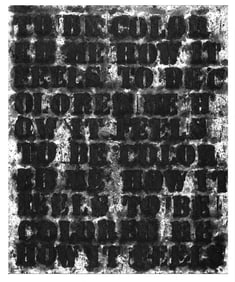 TO BE COLOR
ED ME HOW IT
FEELS TO BE C
OLORED ME H
OW IT FEELS
TO BE COLOR
ED ME HOW IT
FEELS TO BE
COLORED ME
HOW IT FEELS